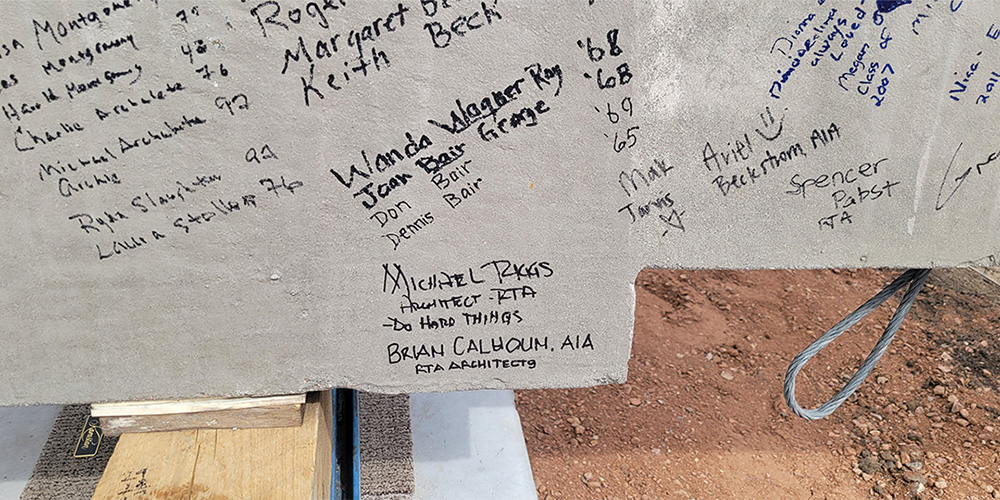 Montgomery 75
Montgomery
Harold Montgomery 43
Charlie Archuleta 76
Michael Archuleta 92
Archie
Ryan Slaughter 92
Laura 76
Roger
Margaret
Keith Beck
Wanda Wagner Roy '68
Joan Bair George '68
Don Bair '69
Dennis Bair '65
Michael Riggs
Architect - RTA
-Do Hard Things
Brian Calhoun, AIA
RTA Architects
Mak
Jarvis
Ariel
Beckstrom, AIA
Spencer
Pabst
RTA
Diana
always
Loved
Megan
Class of
2007
2011